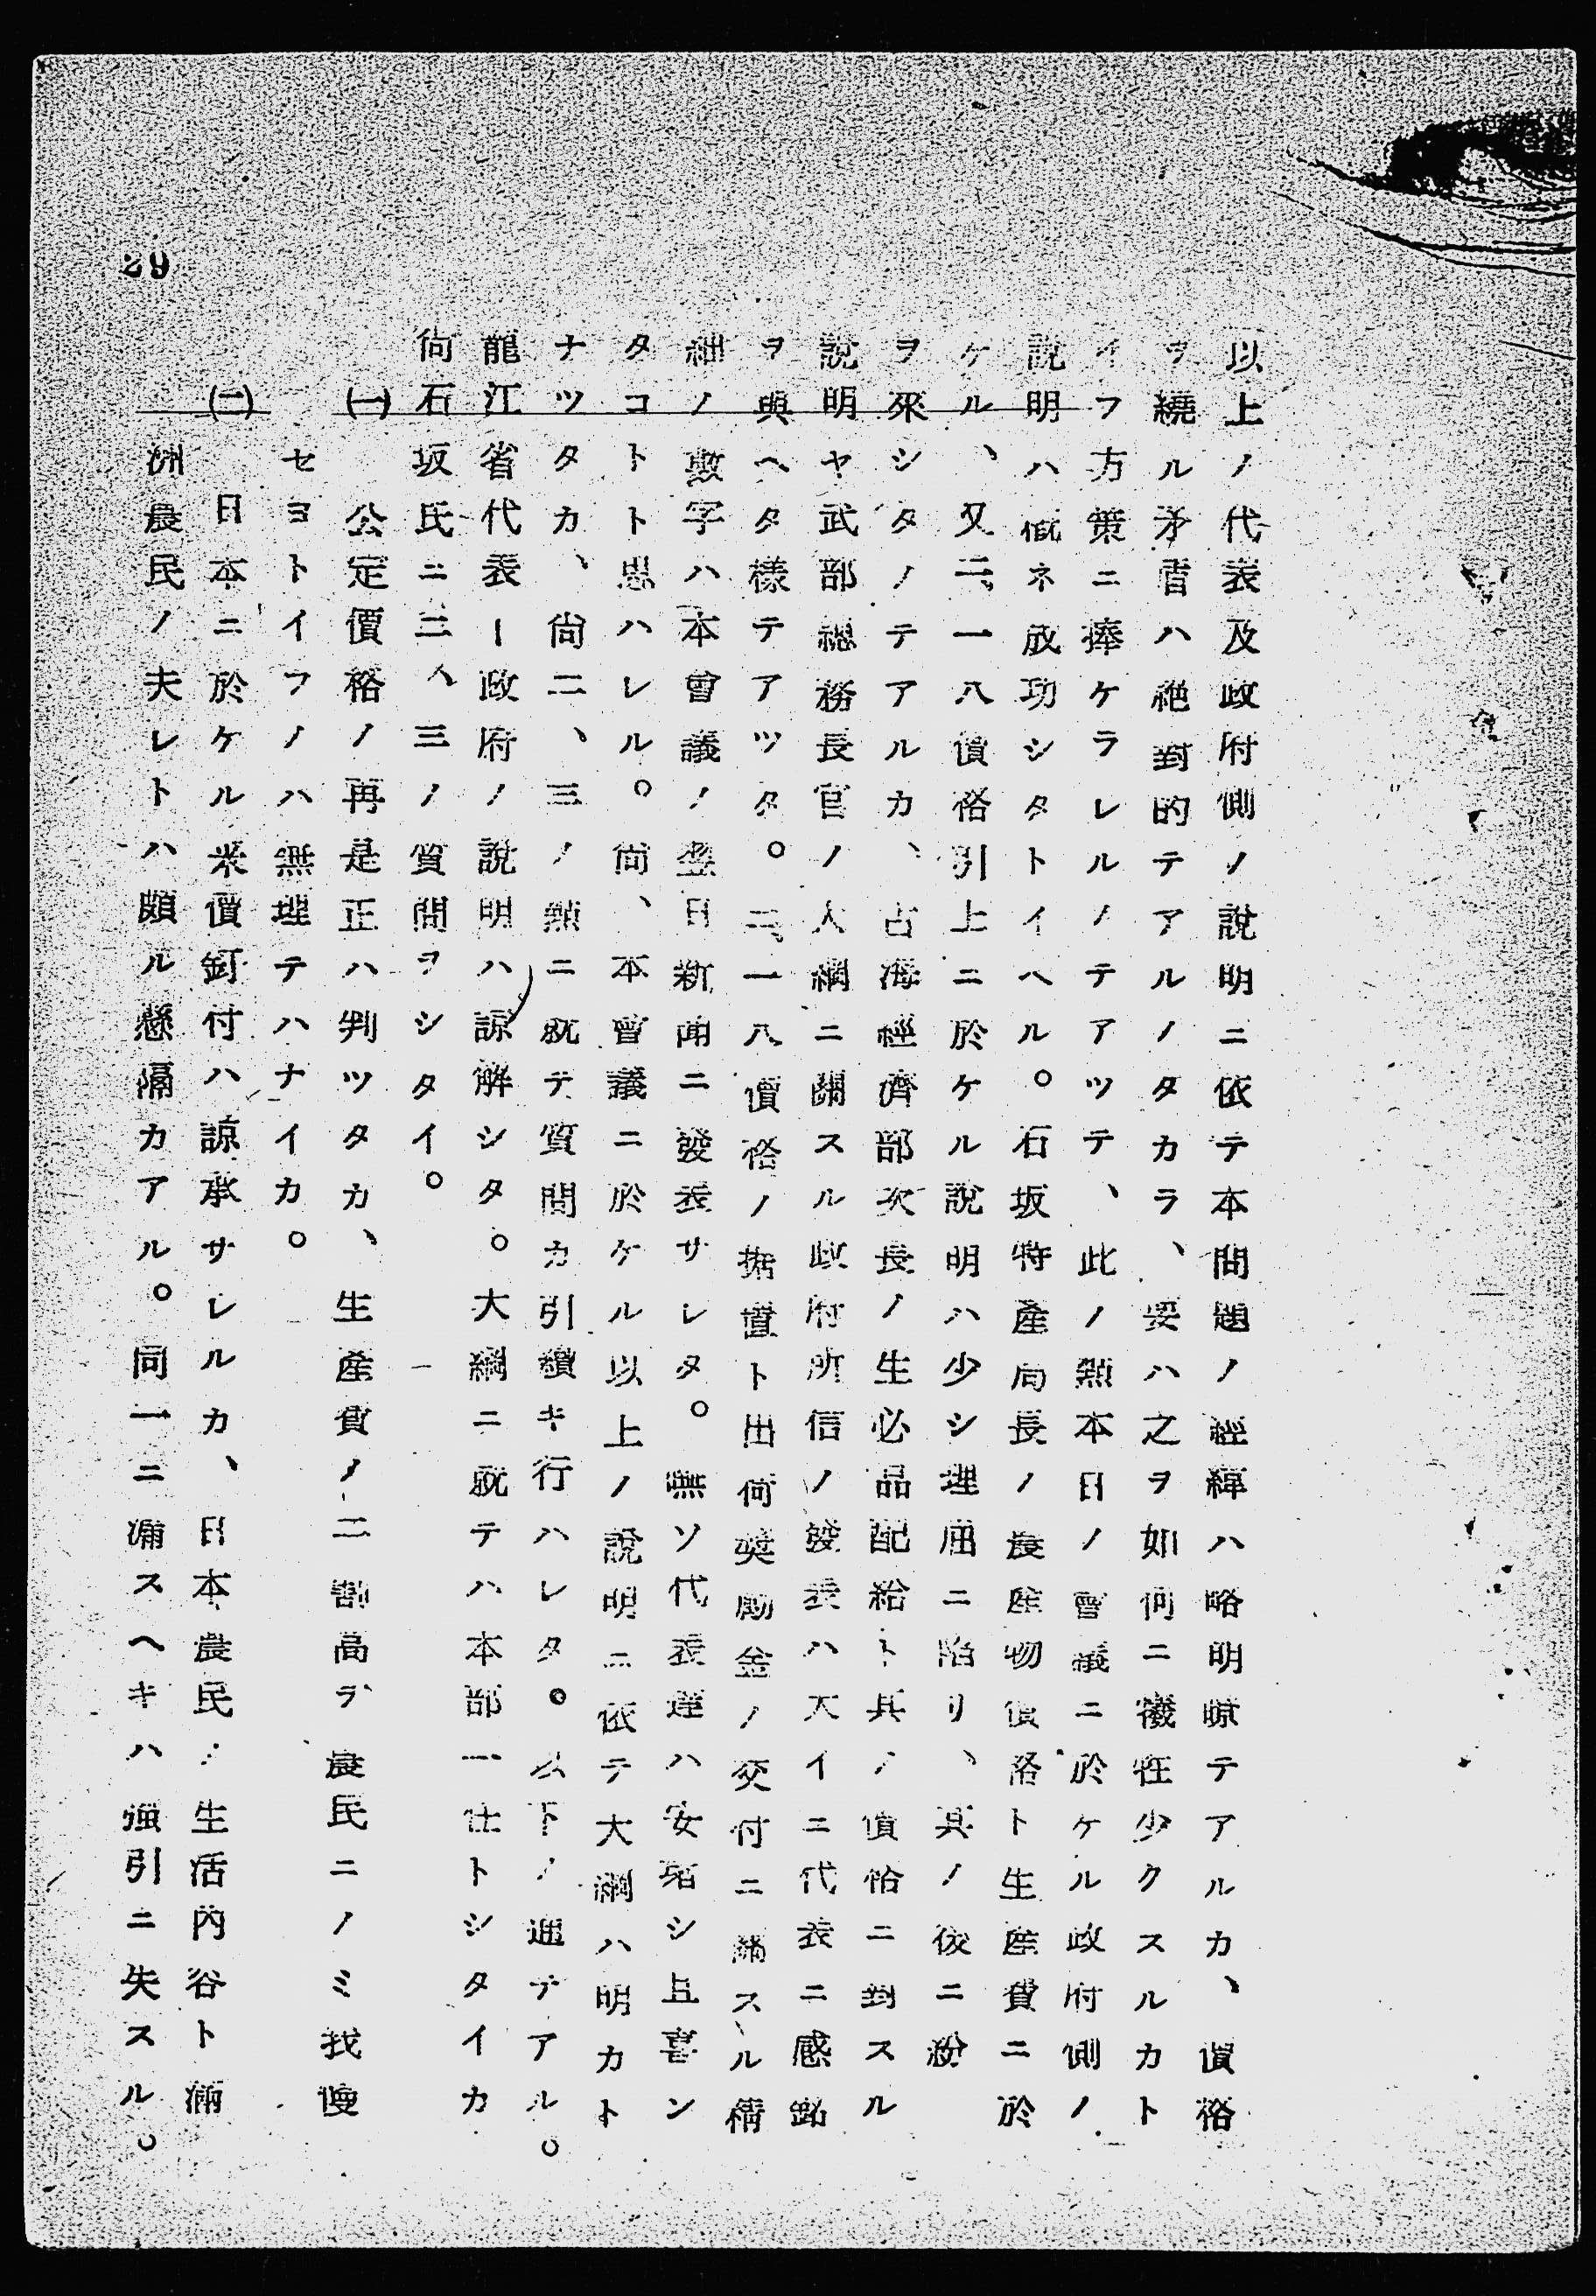 以上ノ代表及政府側ノ說明ニ依テ本問題ノ經緯ハ略明瞭テアルカ、價格
ヲ繞ル矛盾ハ絕對的テアルノタカラ、要ハ之ヲ如何ニ犧牲少クスルカト
イフ方策ニ捧ケラレルノテアツテ、此ノ點本日ノ會議ニ於ケル政府側ノ
說明ハ槪ネ成功シタトイヘル。石坂特產局長ノ農產物價格ト生產費ニ於
ケル、又二、一八價格引上ニ於ケル說明ハ少シ理屈ニ陷リ、其ノ後ニ紛
ヲ來シタノテアルカ、古海經濟部次長ノ生必品配給ト其ノ價格ニ對スル
說明ヤ武部總務長官ノ大綱ニ關スル政府所信ノ發表ハ大イニ代表ニ感銘
ヲ與ヘタ樣テアツタ。二、一八價格ノ据置ト出荷奬勵金ノ交付ニ關スル構
細ノ數字ハ本會議ノ翌日新聞ニ發表サレタ。無ソ代表達ハ安堵シ且喜ン
タコトト思ハレル。尙、本會議ニ於ケル以上ノ說明ニ依テ大綱ハ明カト
ナツタカ、尙二、三ノ點ニ就テ質問カ引續キ行ハレタ。以下ノ通テアル。
龍江省代表ー政府ノ說明ハ諒解シタ。大綱ニ就テハ本部一任トシタイカ
尙石坂氏ニ二、三ノ質問ヲシタイ。
(一)公定價格ノ再是正ハ判ツタカ、生產費ノ二割高ヲ農民ニノミ我慢
セヨトイフノハ無理テハナイカ。
(二)日本ニ於ケル米價釘付ハ諒承サレルカ、日本農民ノ生活內容ト滿
洲農民ノ夫レトハ頗ル懸隔カアル。同一ニ論スヘキハ強引ニ失スル。
29